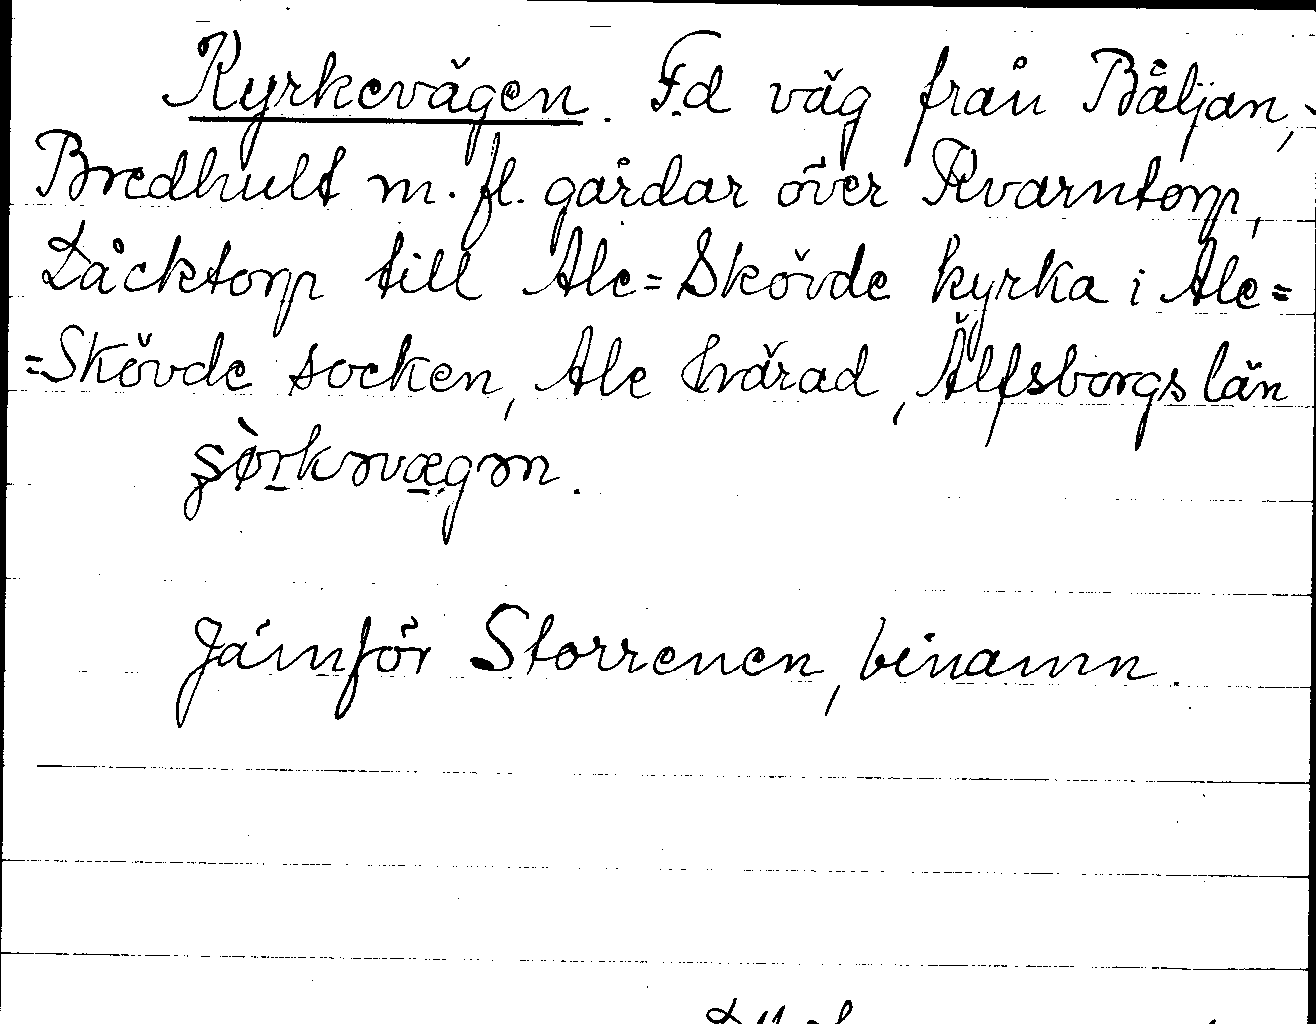 Kyrkevägen. F.d väg från Båljan,
Bredhult m. fl. gårdar över Kvarntorp,
Låcktorp till Ale=Skövde kyrka i Ale=
=Skövde socken, Ale härad, Älfsborgs län
Jämför Storrenen, binamn.